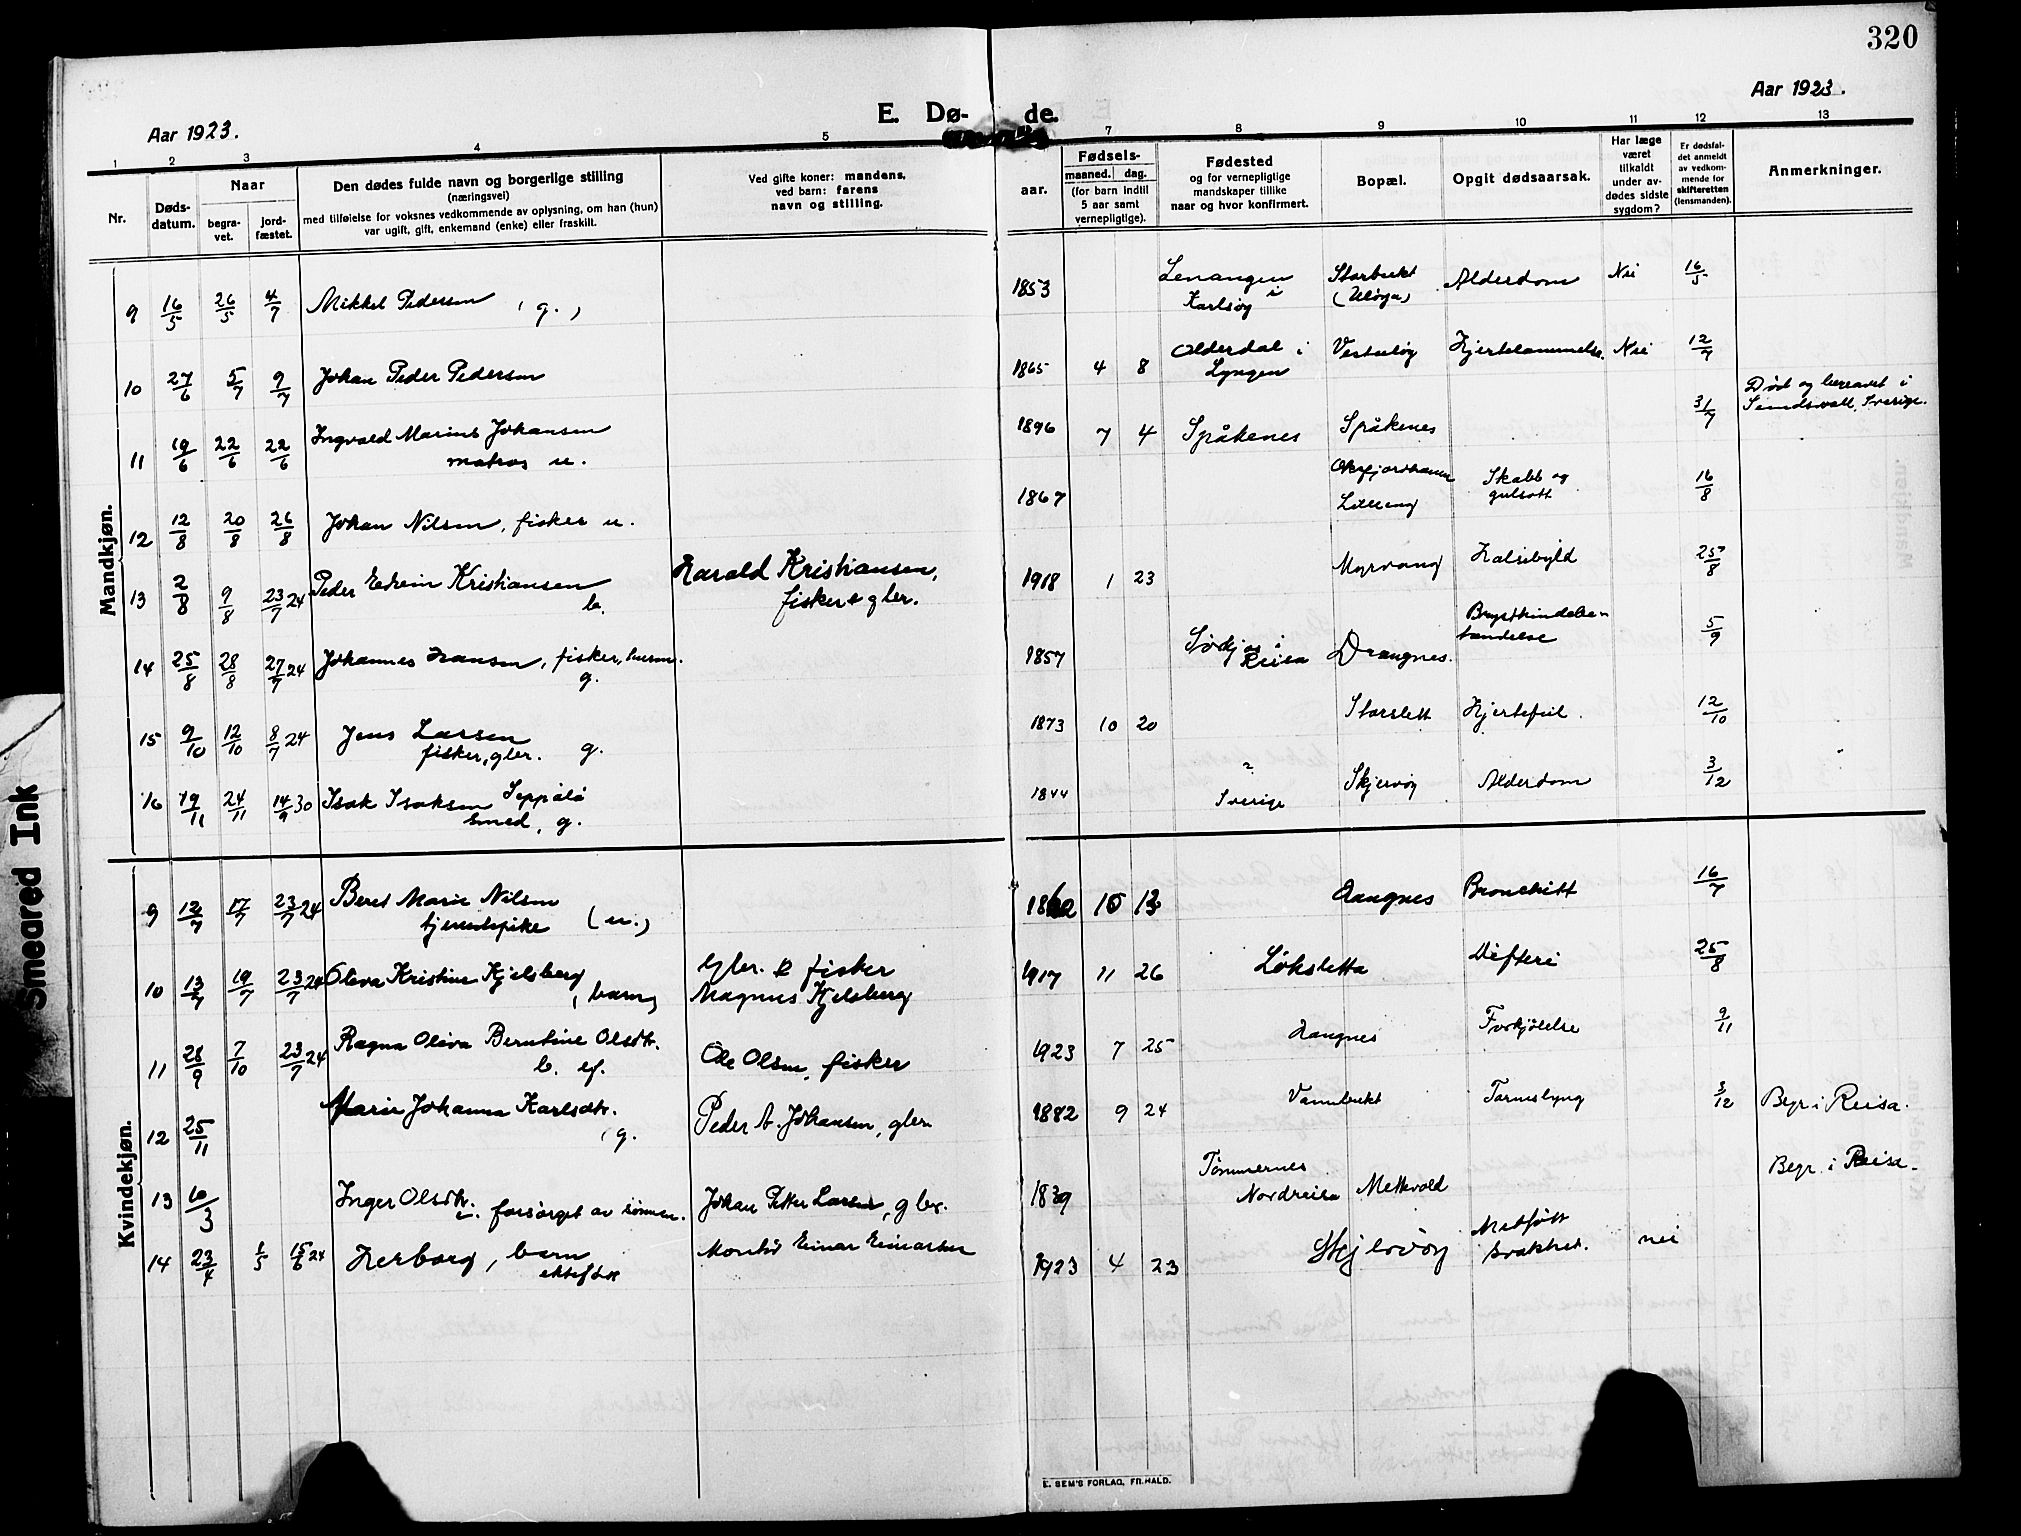 320
Aar 1923.
E. Dø-
de.
Aar 1923.
1 2 3 4 5 7 8 9 10 11 12 13
Nr.
Døds-
datum.
Naar
begra-
vet.
jord-
fæstet.
Den dødes fulde navn og borgerlige stilling
(næringsvei)
med tilføielse for voksnes vedkommende av oplysning, om han (hun)
var ugift, gift, enkemand (enke) eller fraskilt.
Ved gifte koner: mandens,
ved barn: farens
navn og stilling.
aar.
Fødsels-
maaned. dag.
(for barn indtil
5 aar samt
vernepligtige).
Fødested
og for vernepligtige
mandskaper tillike
naar og hvor konfirmert.
Bopæl.
Opgit dødsaarsak.
Har læge
været
tilkaldt
under av-
dødes sidste
sygdom?
Er dødsfal-
det anmeldt
av vedkom-
mende for
skifteretten
(lensmanden).
Anmerkninger.
Mandkjøn.
9 16/5 26/5 4/7 Mikkel Pedersen (g.) 1853 Lenangen i Karlsøy Storbukt (Uløya) Alderdom Nei 16/5
10 27/6 5/7 9/7 Johan Peder Pedersen 1865 4 8 Olderdal i Lyngen Hjertelammelse. Nei 12/7
11 19/6 22/6 22/6 Ingvald Marius Johansen matros u. 1896 7 4 Spåkenes Spåkenes 31/7 Død og begravet i Sundsvall, Sverige.
12 12/8 20/8 26/8 Johan Nilsen, fisker u. 1867 Skabb og gulsott 16/8
13 2/8 9/8 23/7 24 Peder Edvin Kristiansen b. Harald Kristiansen, fisker & gbr. 1918 1 23 Myrvang Halsbyld 25/8
14 25/8 28/8 27/7 24 Johannes Hansen, fisker, husm. g. 1857 i Reisa Drangnes. Brysthindebe- tændelse 5/9
15 9/10 12/10 8/7 24 Jens Larsen fisker, gbr. g. 1873 10 20 Storslett Hjertefeil. 12/10
16 19/11 24/11 14/9 30 Isak Isaksen Seppälä smed, g. 1844 ? Sverige Skjervøy Alderdom 3/12
Kvindekjøn.
9 12/7 17/7 23/7 24 Beret Marie Nilsen tjenestepike (u.) Bronchitt 16/7
10 13/7 19/7 23/7 24 Oleva Kristine Kjelsberg, barn, Gbr. & fisker Magnus Kjelsberg 1917 11 26 Løksletta Difteri 25/8
11 28/9 7/10 23/7 24 Ragna Oliva Berntine Olsdtr. b. ef. Ole Olsen, fisker 1923 7 25 Forkjølelse 9/11
12 25/11 Marie Johanna Karlsdtr. , g. Peder A. Johansen, gbr. 1882 9 24 Tarmslyng 3/12 Begr. i Reisa.
13 10/3 Inger Olsdtr. forsørget av sønnen. Johan Petter Larsen, gbr. 1839 Tømmernes Nordreisa Mettevold Begr. i Reisa.
14 23/4 1/5 15/6 24 Herborg, barn ektefødt Einar Einarsen 1923 4 23 Medfødt svakhet. nei
E. SEM'S FORLAG, FR.HALD.
Smeared Ink